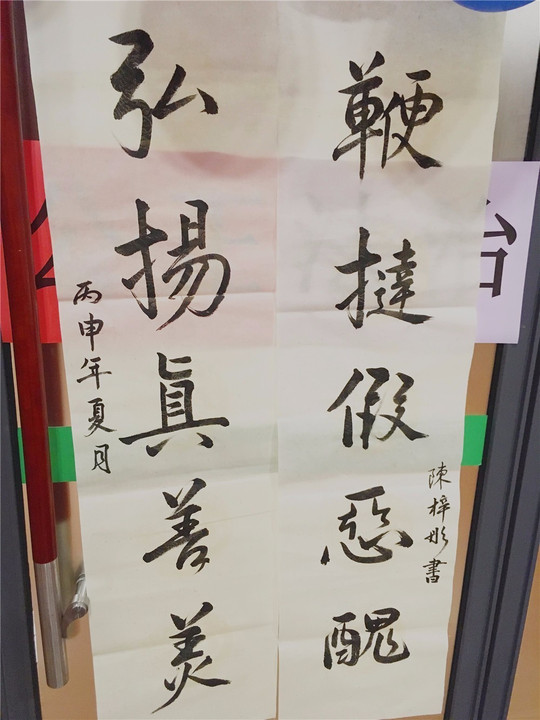 鞭撻假惡醜
陳梓彤書
弘揚真善美
丙申年夏月
台